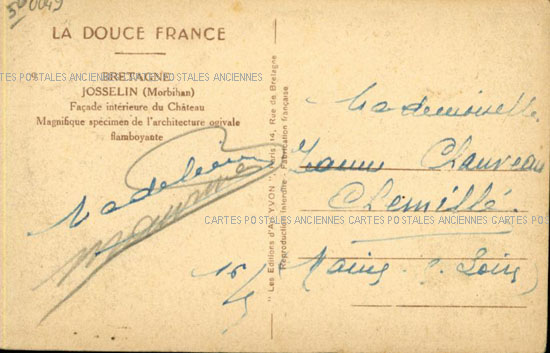 LA DOUCE FRANCE
BRETAGNE
JOSSELIN (Morbihan)
Façade intérieure du Château
Magnifique spécimen de l'architecture ogivale
flamboyante
CARTES POSTALES ANCIENNES CARTES POSTALES ANCIENNES CARTES POSTALES ANCIENNES
Madeleine
" Les Editions d'Art YVON " Paris, 14, Rue de Bretagne
Reproduction interdite - Fabrication française
Mademoiselle
Chauveau
Chemillé
CARTES POSTALES ANCIENNES CARTES POSTALES ANCIENNES
Maine-&-Loire